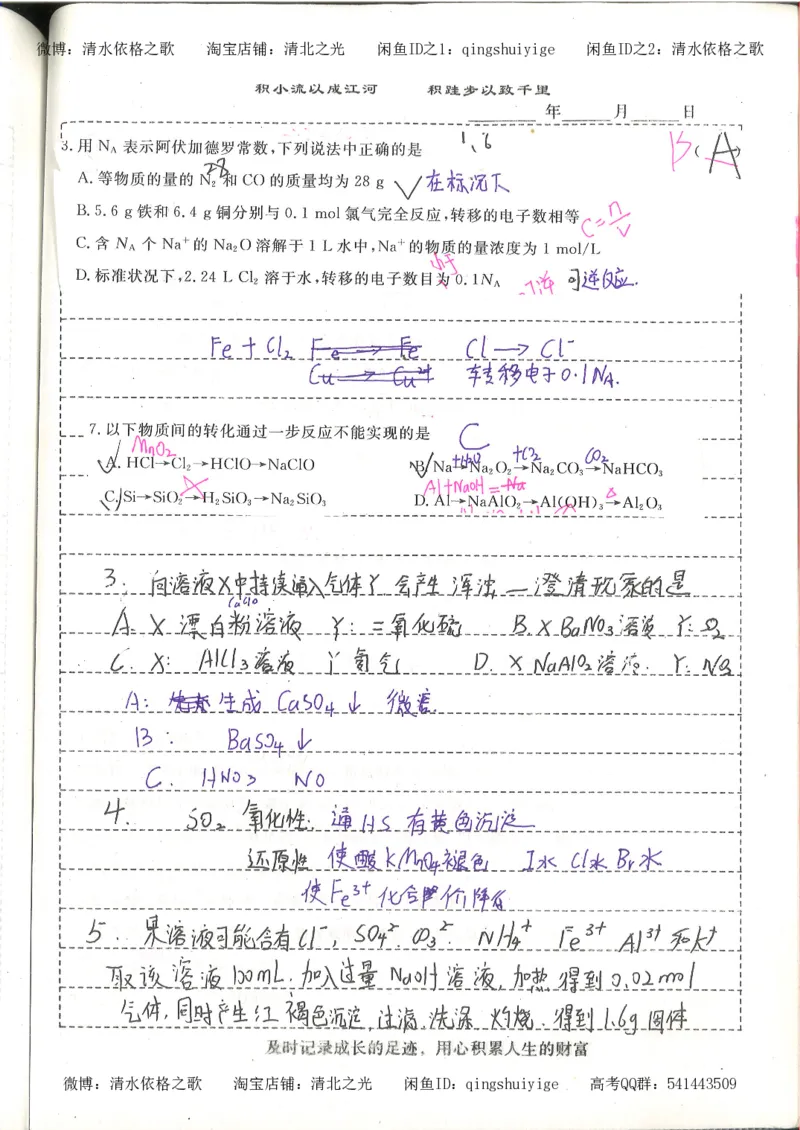 微博：清水依格之歌 淘宝店铺：清北之光 闲鱼ID之1：qingshuiyige 闲鱼ID之2：清水依格之歌
积小流以成江河 积跬步以致千里
年 月 日
3.用 NA 表示阿伏加德罗常数,下列说法中正确的是 1、6 B (A)
28
A.等物质的量的 N2 和 CO 的质量均为 28 g √ 在标况下
B.5.6 g 铁和 6.4 g 铜分别与 0.1 mol 氯气完全反应,转移的电子数相等 C=n/V
C.含 NA 个 Na+ 的 Na2O 溶解于 1 L 水中,Na+ 的物质的量浓度为 1 mol/L
小于
D.标准状况下,2.24 L Cl2 溶于水,转移的电子数目为 0.1NA 可逆反应.
Fe + Cl2 Fe→Fe Cl → Cl-
Cu→Cu2+ 转移电子0.1NA.
7.以下物质间的转化通过一步反应不能实现的是 C
MnO2 +CO2 CO2
A.HCl→Cl2→HClO→NaClO B.Na→Na2O2→Na2CO3→NaHCO3
Al+NaOH= Na △
C.Si→SiO2→H2SiO3→Na2SiO3 D.Al→NaAlO2→Al(OH)3→Al2O3
3. 向溶液X中持续通入气体Y 会产生 浑浊 — 澄清现象的是
CaClO
A. X 漂白粉溶液 Y：二氧化硫 B. X BaNO3溶液 Y：O2
C. X： AlCl3溶液 Y 氨气 D. X NaAlO2溶液. Y：NO2
A： 生成 CaSO4↓ 微溶
B： BaSO4↓
C. HNO3 NO
4. SO2 氧化性： 通HS 有黄色沉淀
还原性 使酸KMnO4褪色 I水 Cl水 Br水
使Fe3+ 化合价降低
5. 某溶液可能含有Cl-, SO42- CO32- NH4+ Fe3+ Al3+ 和K+
取该溶液100mL.加入过量 NaOH溶液,加热 得到0.02mol
气体,同时产生红褐色沉淀,过滤,洗涤 灼烧.得到1.6g固体
及时记录成长的足迹，用心积累人生的财富
微博：清水依格之歌 淘宝店铺：清北之光 闲鱼ID：qingshuiyige 高考QQ群：541443509